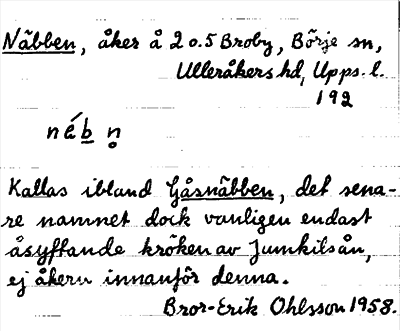 Näbben, åker å 2 o. 5 Broby, Börje sn,
Ulleråkers hd, Upps. l.
192
néb n̥
Kallas ibland Gåsnäbben, det sena-
re namnet dock vanligen endast
åsyftande kröken av Jumkilsån,
ej åkern innanför denna.
Bror-Erik Ohlsson 1958.